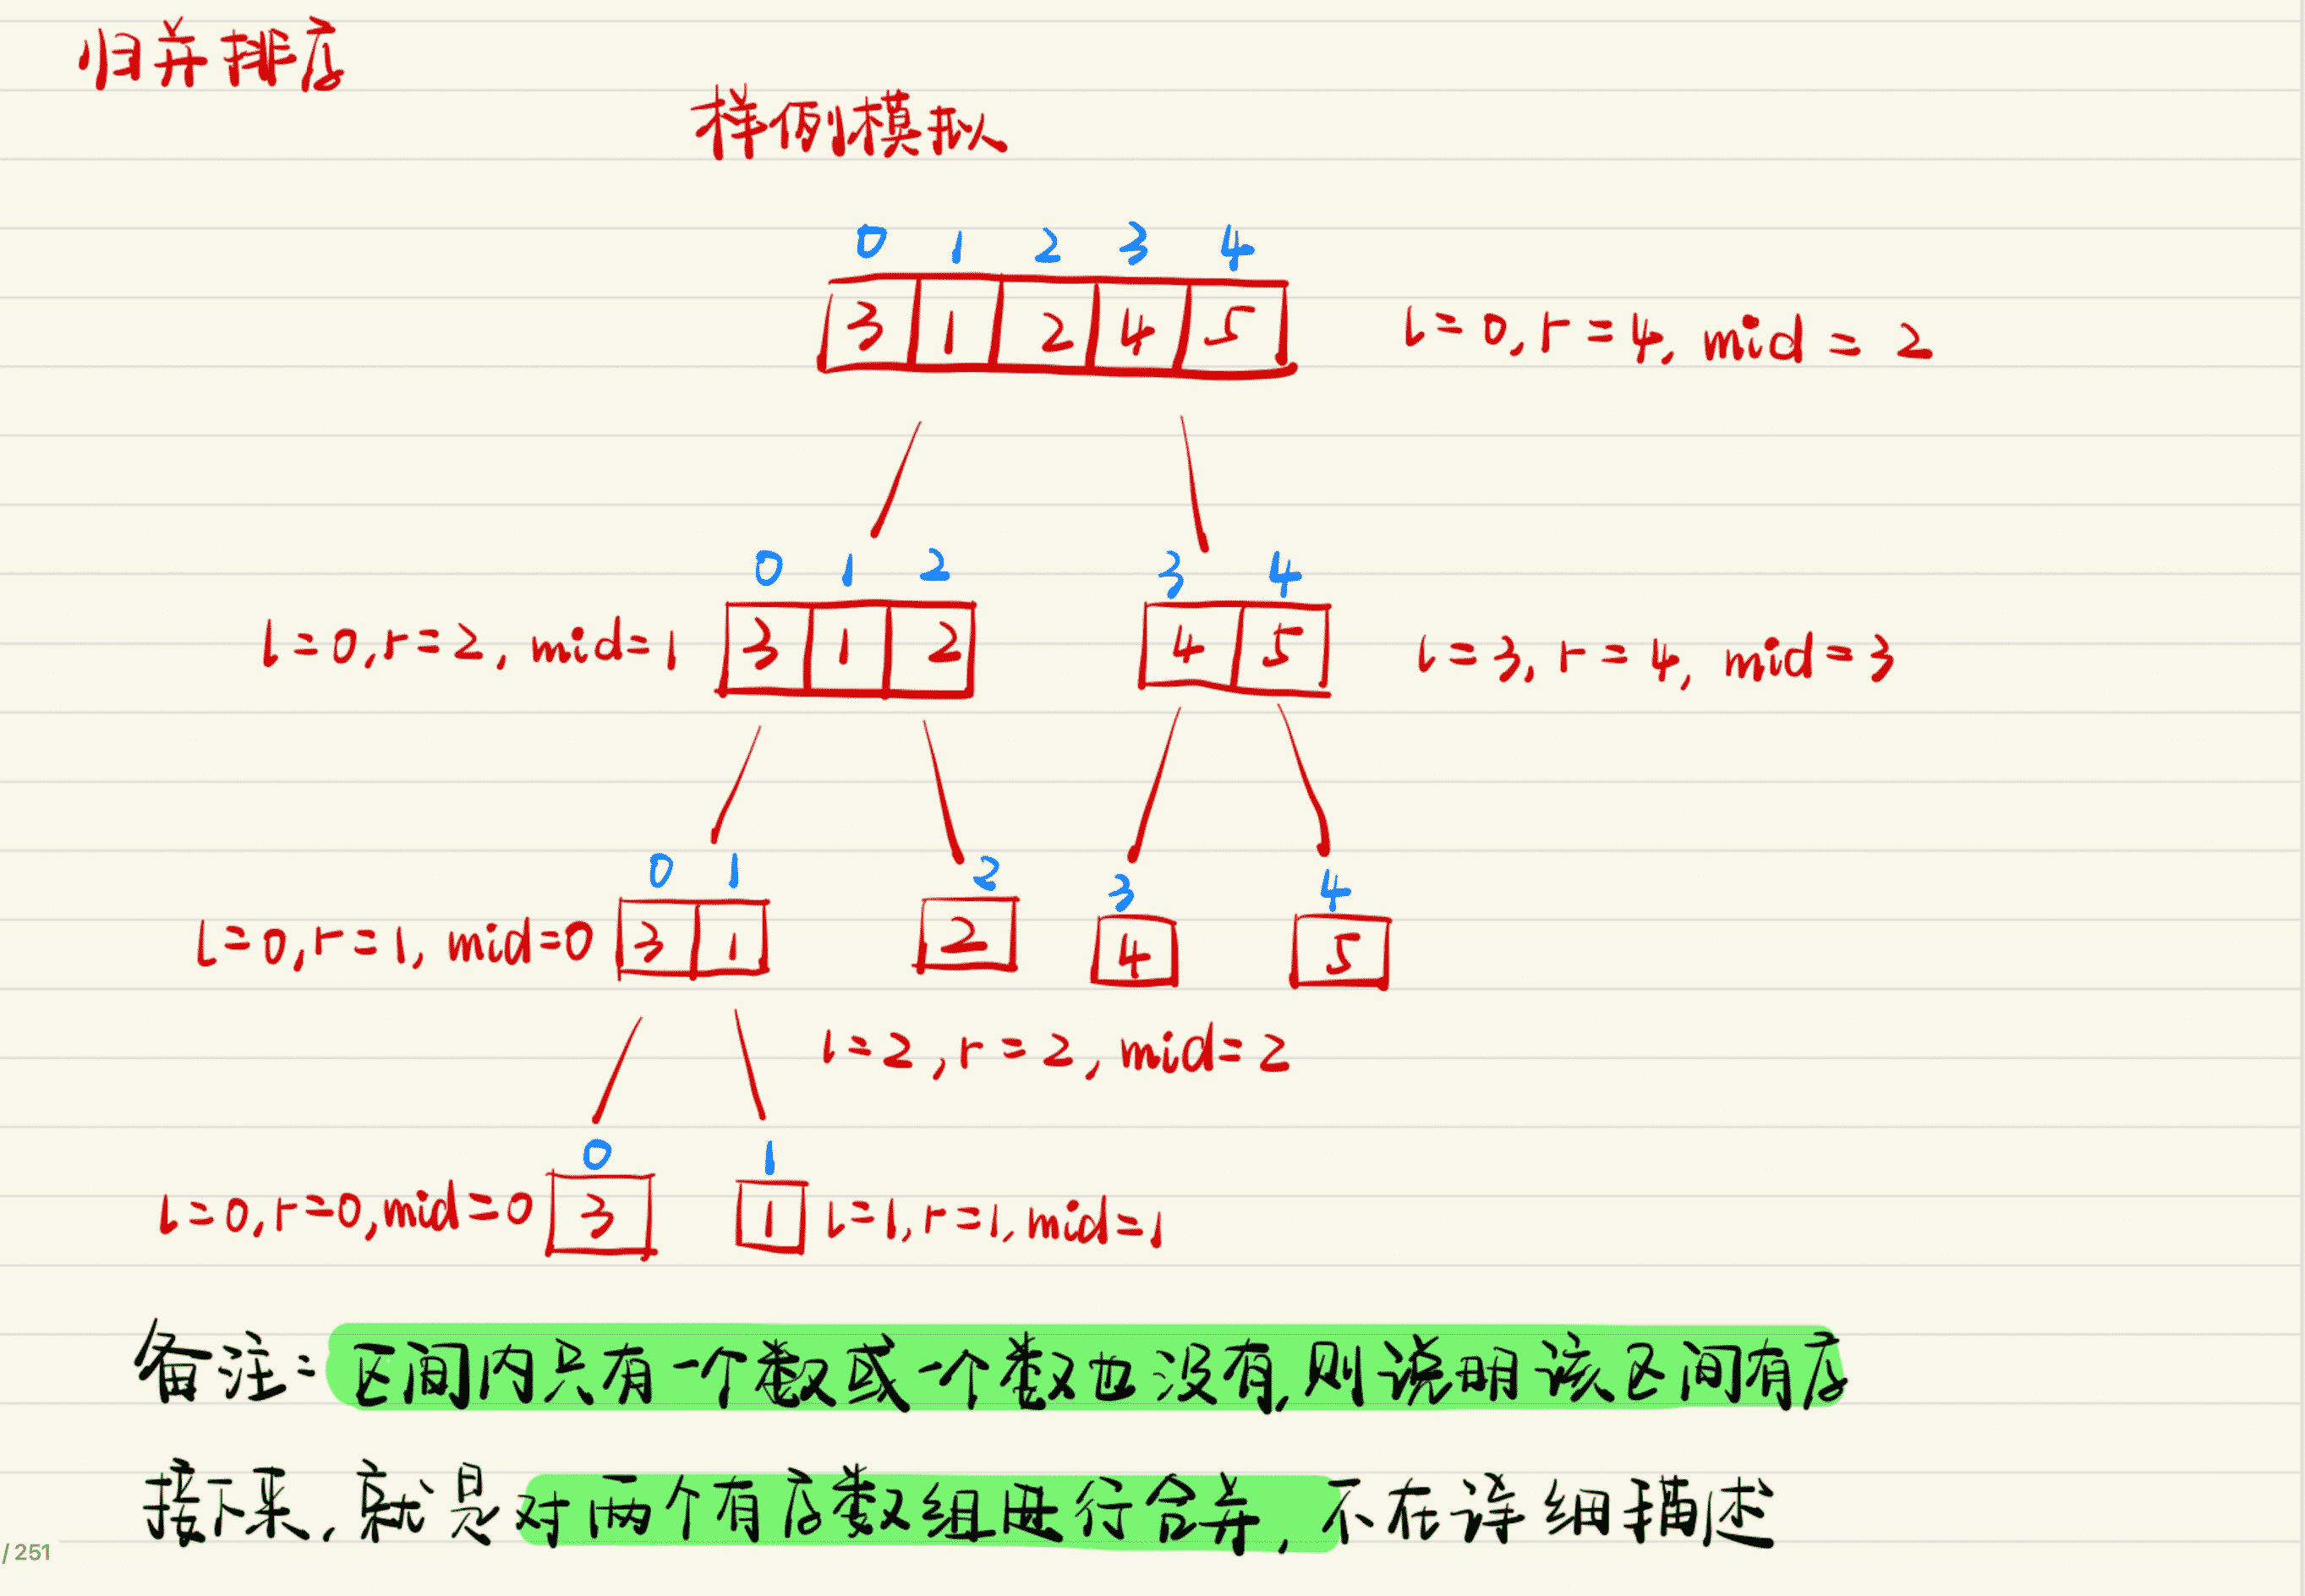 归并排序
样例模拟
0 1 2 3 4
3 1 2 4 5 l=0,r=4,mid=2
0 1 2 3 4
l=0,r=2,mid=1 3 1 2 4 5 l=3,r=4,mid=3
0 1 2 3 4
l=0,r=1,mid=0 3 1 2 4 5
l=2,r=2,mid=2
0 1
l=0,r=0,mid=0 3 1 l=1,r=1,mid=1
备注:区间内只有一个数或一个数也没有,则说明该区间有序
接下来,就是对两个有序数组进行合并,不在详细描述
/251